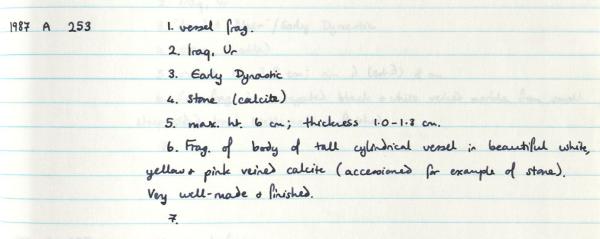 1987 A 253 1. vessel frag.
2. Iraq, Ur
3. Early Dynastic
4. Stone (calcite)
5. max. ht. 6 cm; thickness 1.0-1.8 cm.
6. Frag. of body of tall cylindrical vessel in beautiful white,
yellow & pink veined calcite (accessioned for example of stone).
Very well-made & finished.
7.